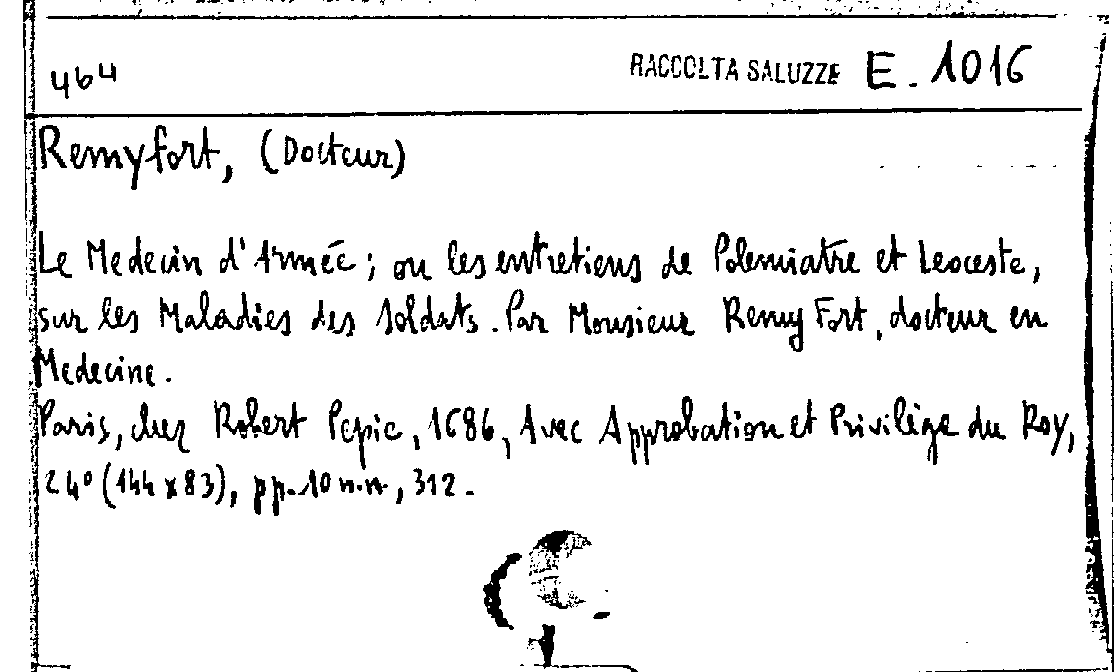 464 RACCOLTA SALUZZE E. 1016
Remyfort, (Docteur)
Le Medecin d'Armée; ou les entretiens de Polemiatre et Leoceste,
sur les Maladies des Soldats. Par Monsieur Remy Fort, docteur en
Medecine.
Paris, chez Robert Pepie, 1686, Avec Approbation et Privilège du Roy,
24° (144 x 83), pp. 10 n.n., 312.